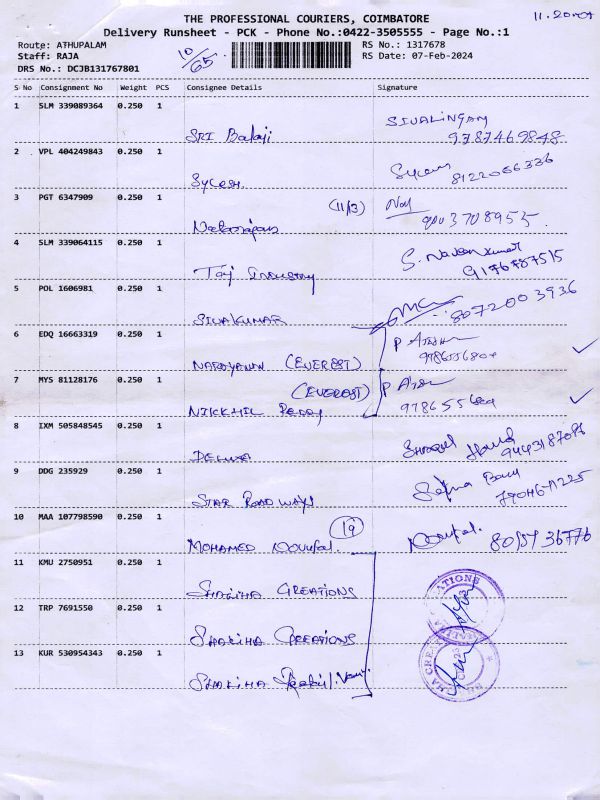 11.20
THE PROFESSIONAL COURIERS, COIMBATORE
Delivery Runsheet - PCK - Phone No.:0422-3505555 - Page No.:1
Route: ATHUPALAM
RS No.: 1317678
Staff: RAJA
10/65
RS Date: 07-Feb-2024
DRS No.: DCJB131767801
S No Consignment No Weight PCS Consignee Details Signature
1 SLM 339089364 0.250 1 SRI Balaji SIVALINGAM
9787469848
2 VPL 404249843 0.250 1 Sycesh.
8122066336
3 PGT 6347909 0.250 1 (11/3)
9003708955
4 SLM 339064115 0.250 1 Taj Industry S. Naveen Kumar
9176787515
5 POL 1606981 0.250 1 SIVAKUMAR
8072003936
6 EDQ 16663319 0.250 1 NARAYANAN (EVEREST)
7 MYS 81128176 0.250 1 NIKKHIL REDDY (EVEREST)
8 IXM 505848545 0.250 1
9443187086
9 DDG 235929 0.250 1 STAR ROADWAYS
10 MAA 107798590 0.250 1 MOHAMED Noufal. (19) Noufal.
11 KMU 2750951 0.250 1 SHALIHA CREATIONS
12 TRP 7691550 0.250 1 SHALIHA CREATIONS
13 KUR 530954343 0.250 1 SHALIHA